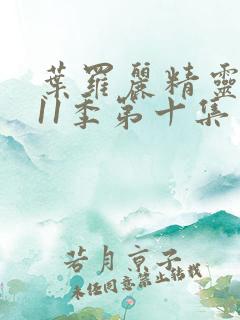 葉羅麗精靈
11季第十集
若月京子
未任同意禁止結載